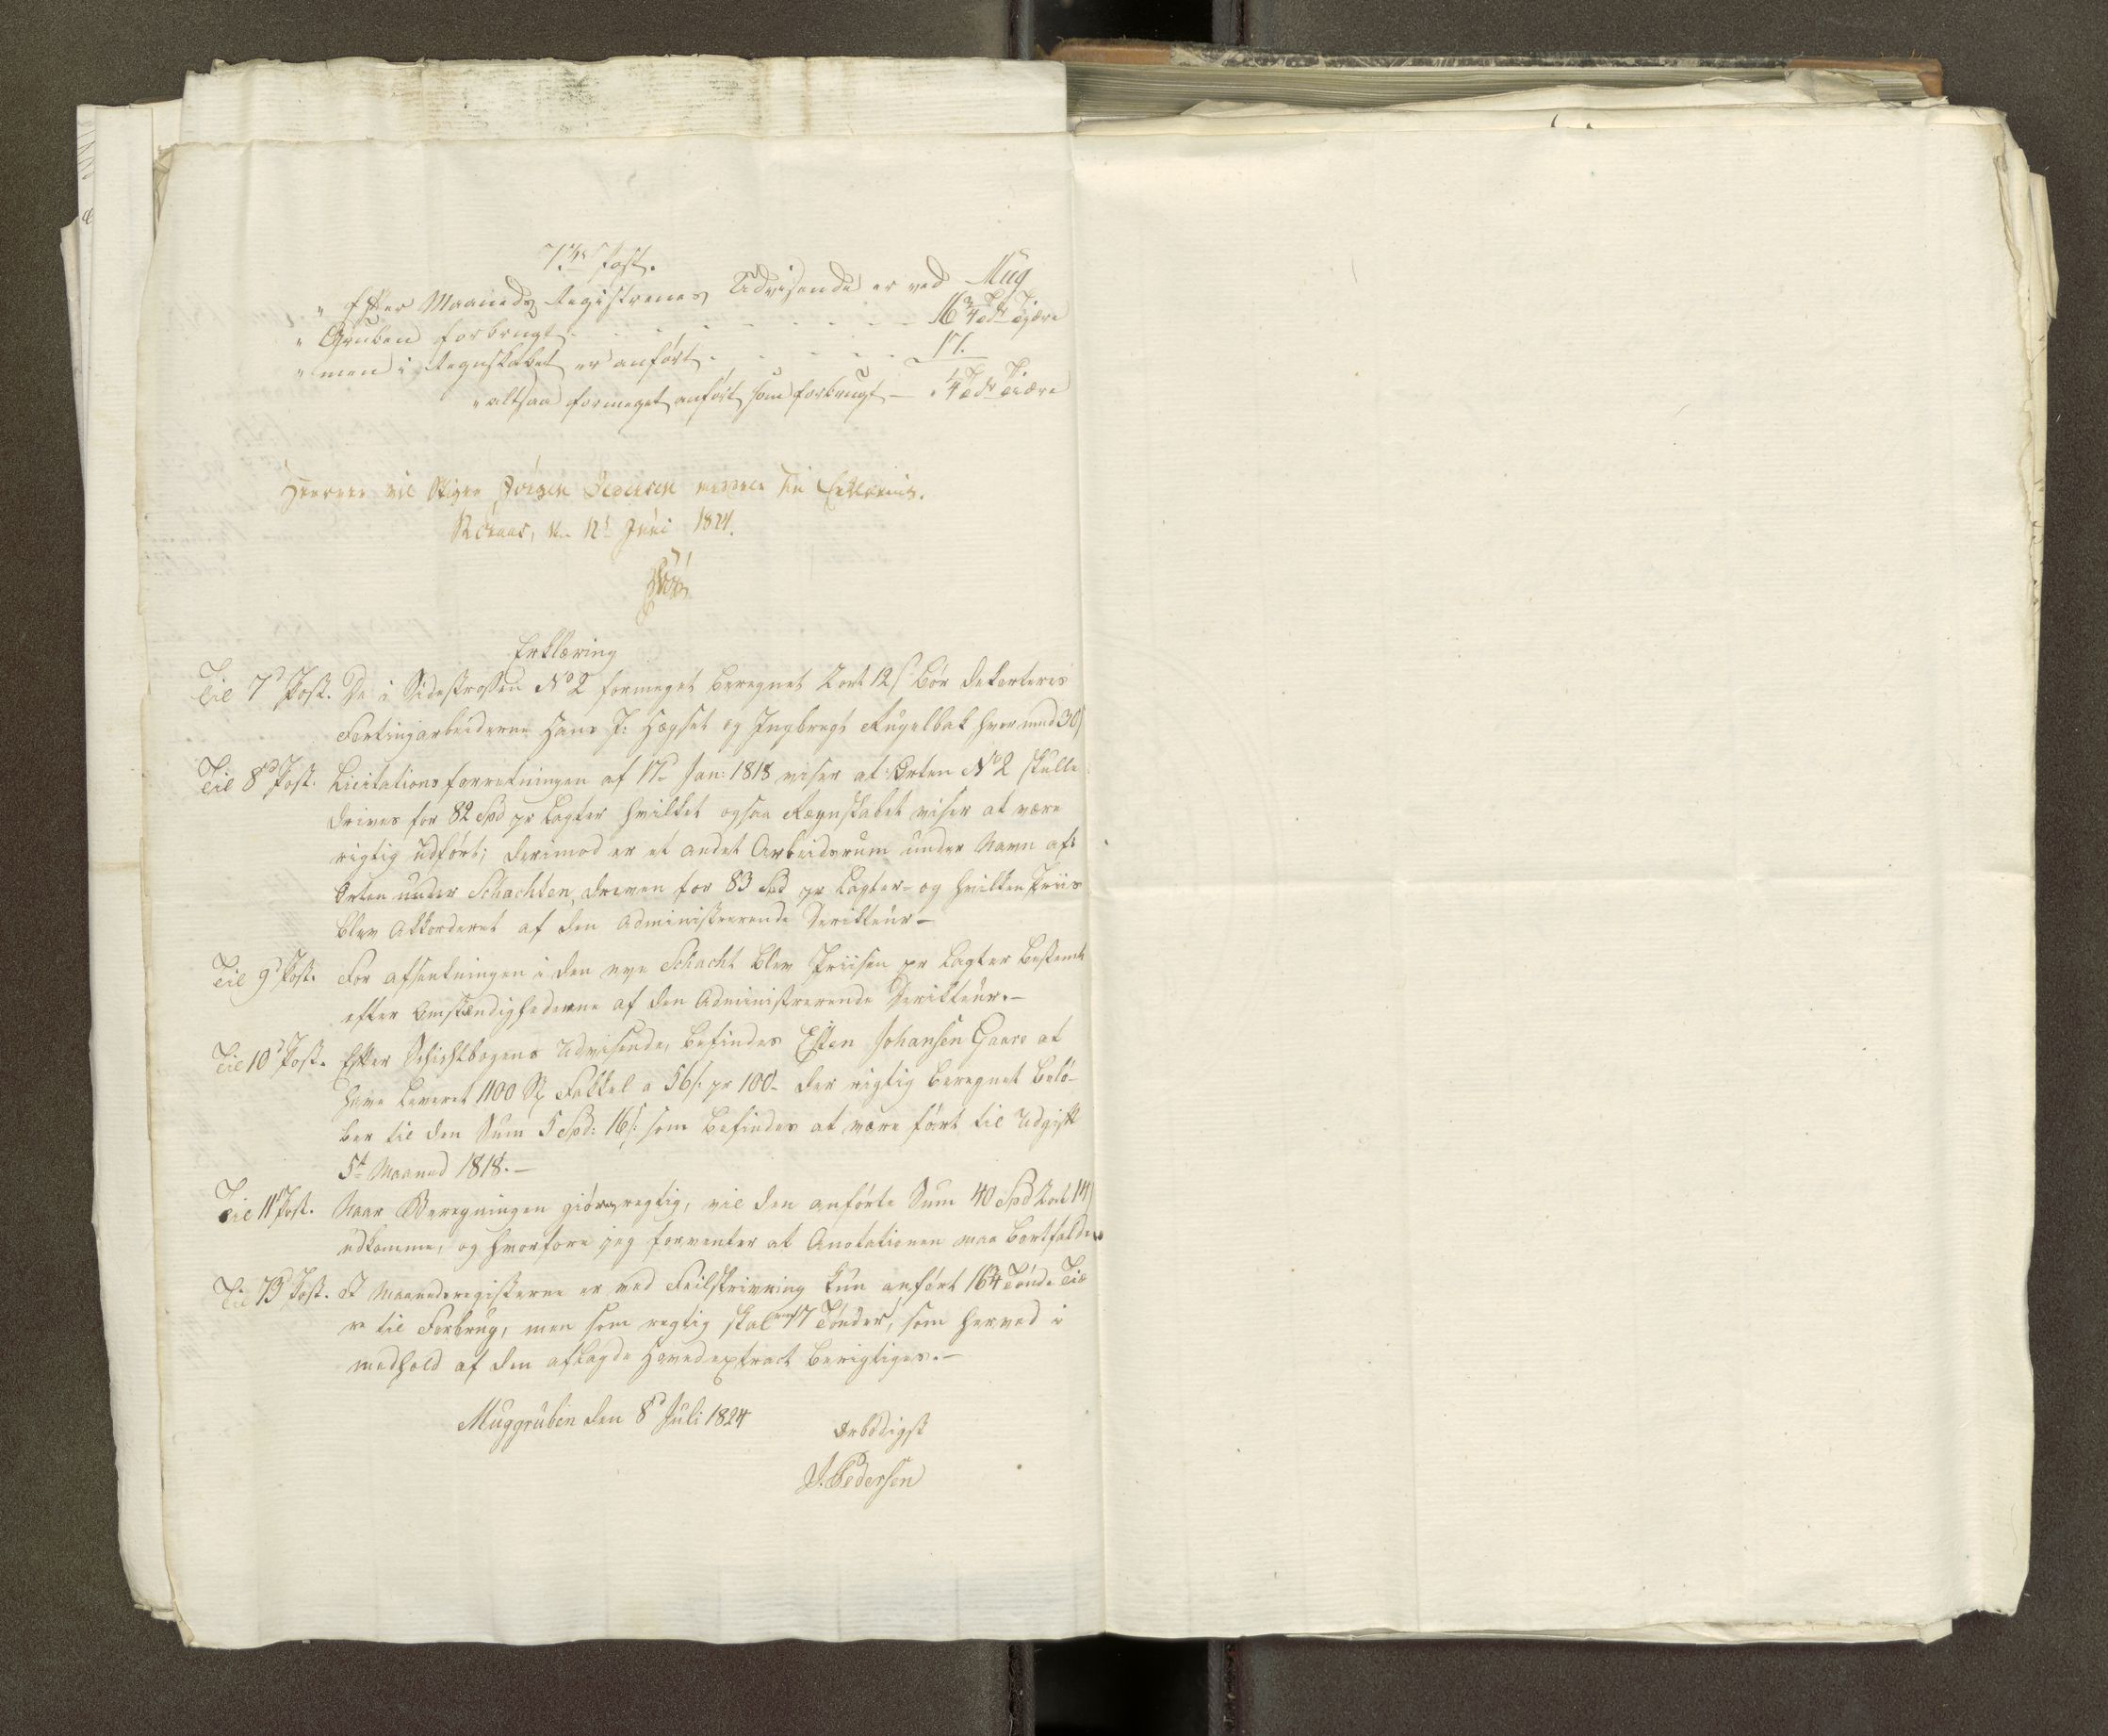 73de Post.
" Efter Maaneds Registrenes Udvisende er ved Mug
" Gruben forbrugt - - - - - - - - 16 3/4 Tdr Tjære
" men i Regnskabet er anført - - - - - 17.
" altsaa formeget anført som forbrugt — " 1/4 Tdr Tiære
Herover vil Stiger Jörgen Pedersen meddele sin Erklæring.
Röraas, den 12t Juni 1824.
Erklæring
Til 7d Post. De i Sidestrossen No 2 formeget beregnet 2 ort 12 s bör dekorteres
Fortingarbeiderne Hans J: Hægset og Ingbregt Kugelbak hver med 30 s
Til 8d Post. Licitationsforretningen af 17d Jan: 1818 viser at: Orten No 2 skulle
drives for 82 Spd pr Lagter hvilket ogsaa Regnskabet viser at være
rigtig udført; derimod er et andet Arbeidsrum under Navn af:
Orten under Schachten, dreven for 83 Spd pr Lagter - og hvilken Priis
blev Akkorderet af den Administrerende Derikteur —
Til 9d Post. For afsenkningen i den nye Schacht blev Priisen pr Lagter bestemt
efter Omstændighederne af den Administrerende Derikteur. —
Til 10d Post. Efter Schichtbogens Udvisende, befindes Esten Johansen Gaare at
have leveret 1100 St Fakkel a 56 s. pr 100 - der rigtig beregnet belø-
ber til den Sum 5 Spd: 16 s. som befindes at være ført til Udgift
5t Maaned 1818. —
Til 11d Post. Naar Beregningen giøres regtig, vil den anførte Sum 40 Spd 2 ort 14 s
udkomme, og hvorfore jeg forventer at Anotationen maa bortfalde.
Til 73d Post. I Maanedsregisterne er ved Feilskrivning kun anført 16 3/4 Tønde Tiæ
re til Forbrug, men som regtig skal være 17 Tønder, som herved i
medhold af den aflagde Hovedextract berigtiges. —
Muggruben den 8d Juli 1824
Ærbødigst
J. Pedersen